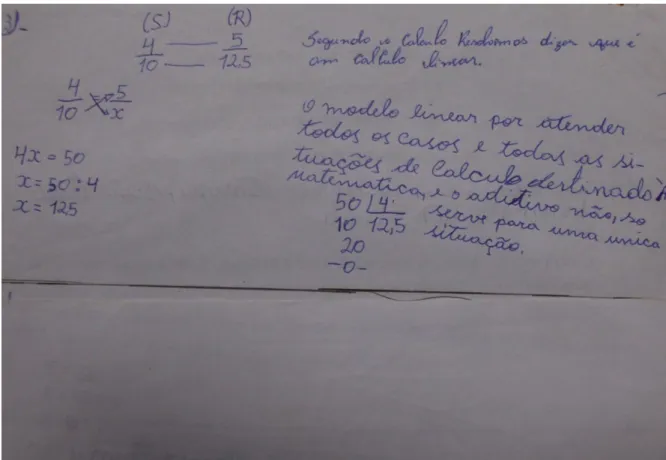 3)-
(S) (R)
4 — 5
10 — 12,5
4/10 5/x
4x = 50
x = 50 : 4
x = 125
Segundo o Calculo Resolvemos dizer que é
um Calculo linear.
O modelo linear por atender
todos os casos e todas as si-
tuações de Calculo destinado À
matematica, e o aditivo não, so
serve para uma unica
situação.
50 | 4
10 12,5
20
-0-